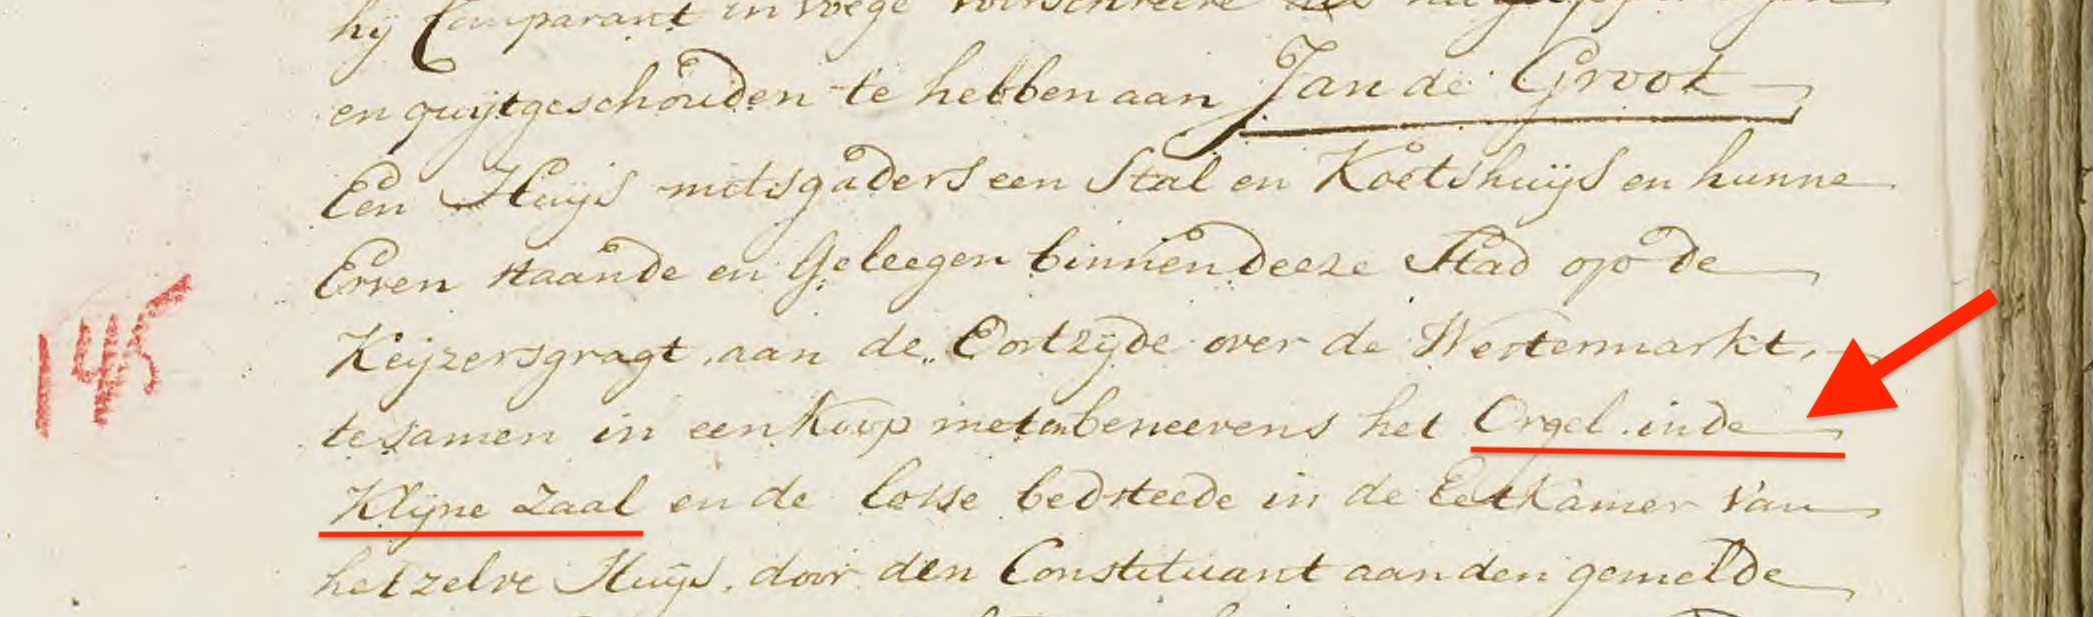 hij Comparant in voege voorschreeve
en quijtgeschouden te hebben aan Jan de Groot
Een Huijs mitsgaders een Stal en Koetshuijs en hunne
Erven staande en Geleegen binnen deeze Stad op de
Keijzersgragt, aan de Oostzijde over de Westermarkt,
145
te zamen in een koop met en beneevens het Orgel in de
Klijne Zaal en de losse bedsteede in de Eetkamer van
hetzelve Huijs, door den Constituant aan den gemelde